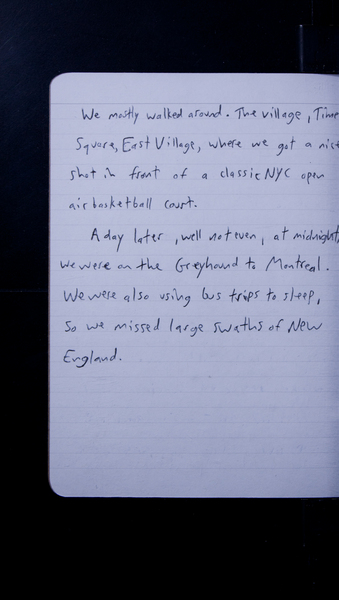 We mostly walked around. The village, Time
Square, East Village, where we got a nice
shot in front of a classic NYC open
air basketball court.
A day later, well not even, at midnight,
we were on the Greyhound to Montreal.
We were also using bus trips to sleep,
so we missed large swaths of New
England.